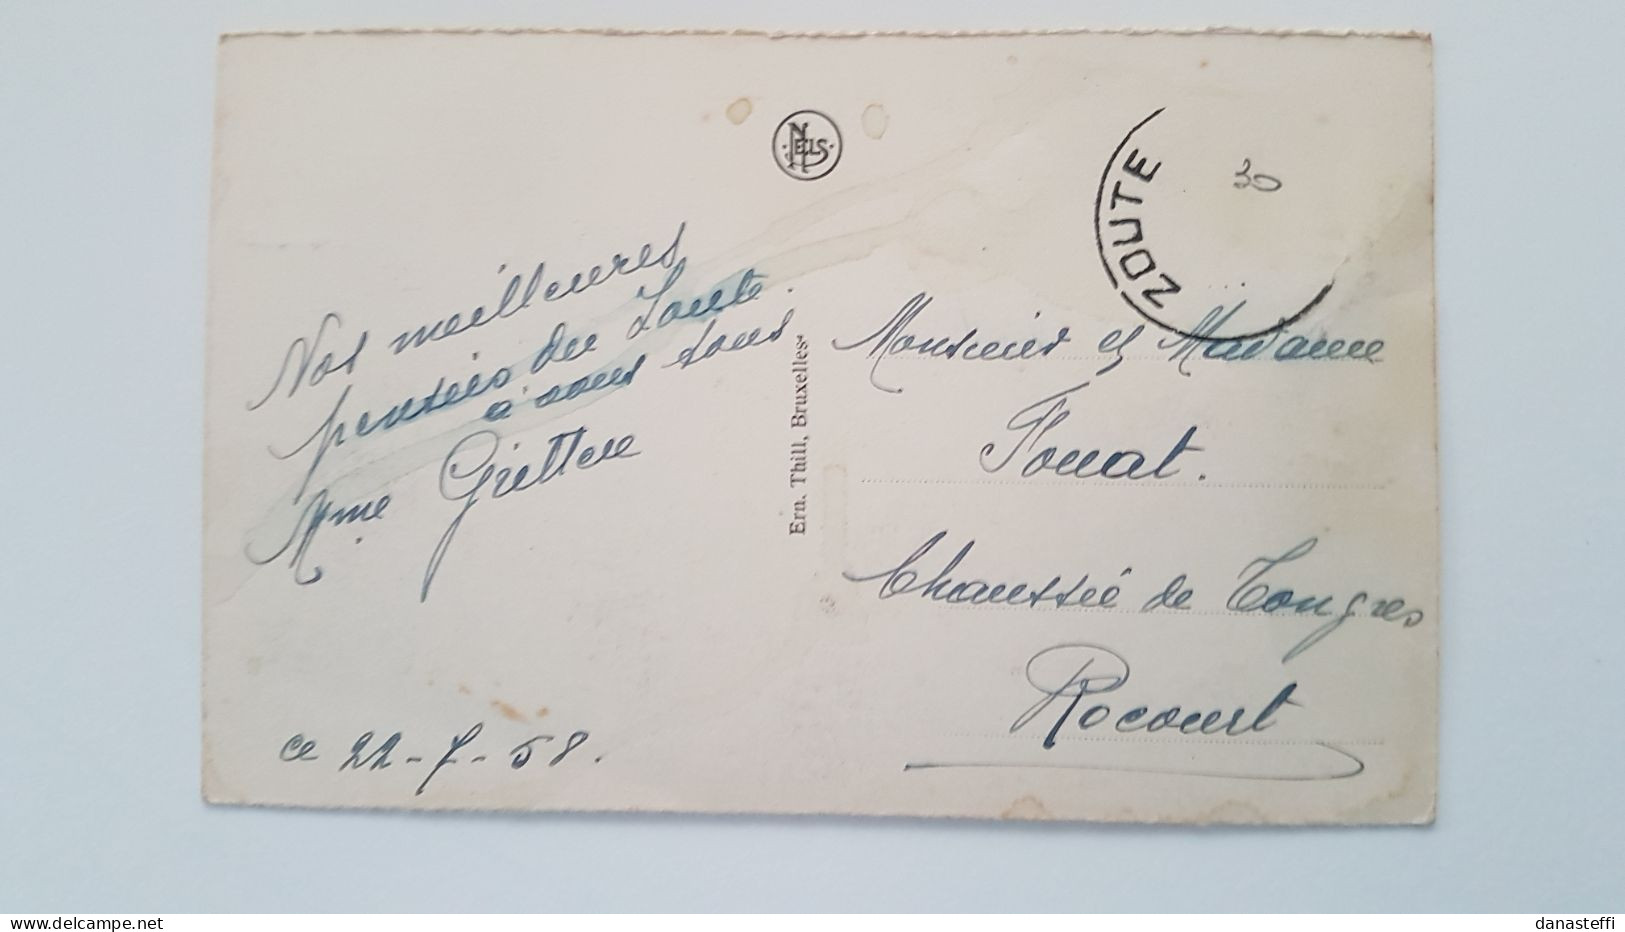 Nos meilleures
pensées du Zoute
à vous tous
Mme
ce 22-7-58.
NELS
Ern. Thill, Bruxelles
ZOUTE
30
Monsieur et Madame
Chaussée de Tongres
Rocourt
delcampe.net
danasteffi